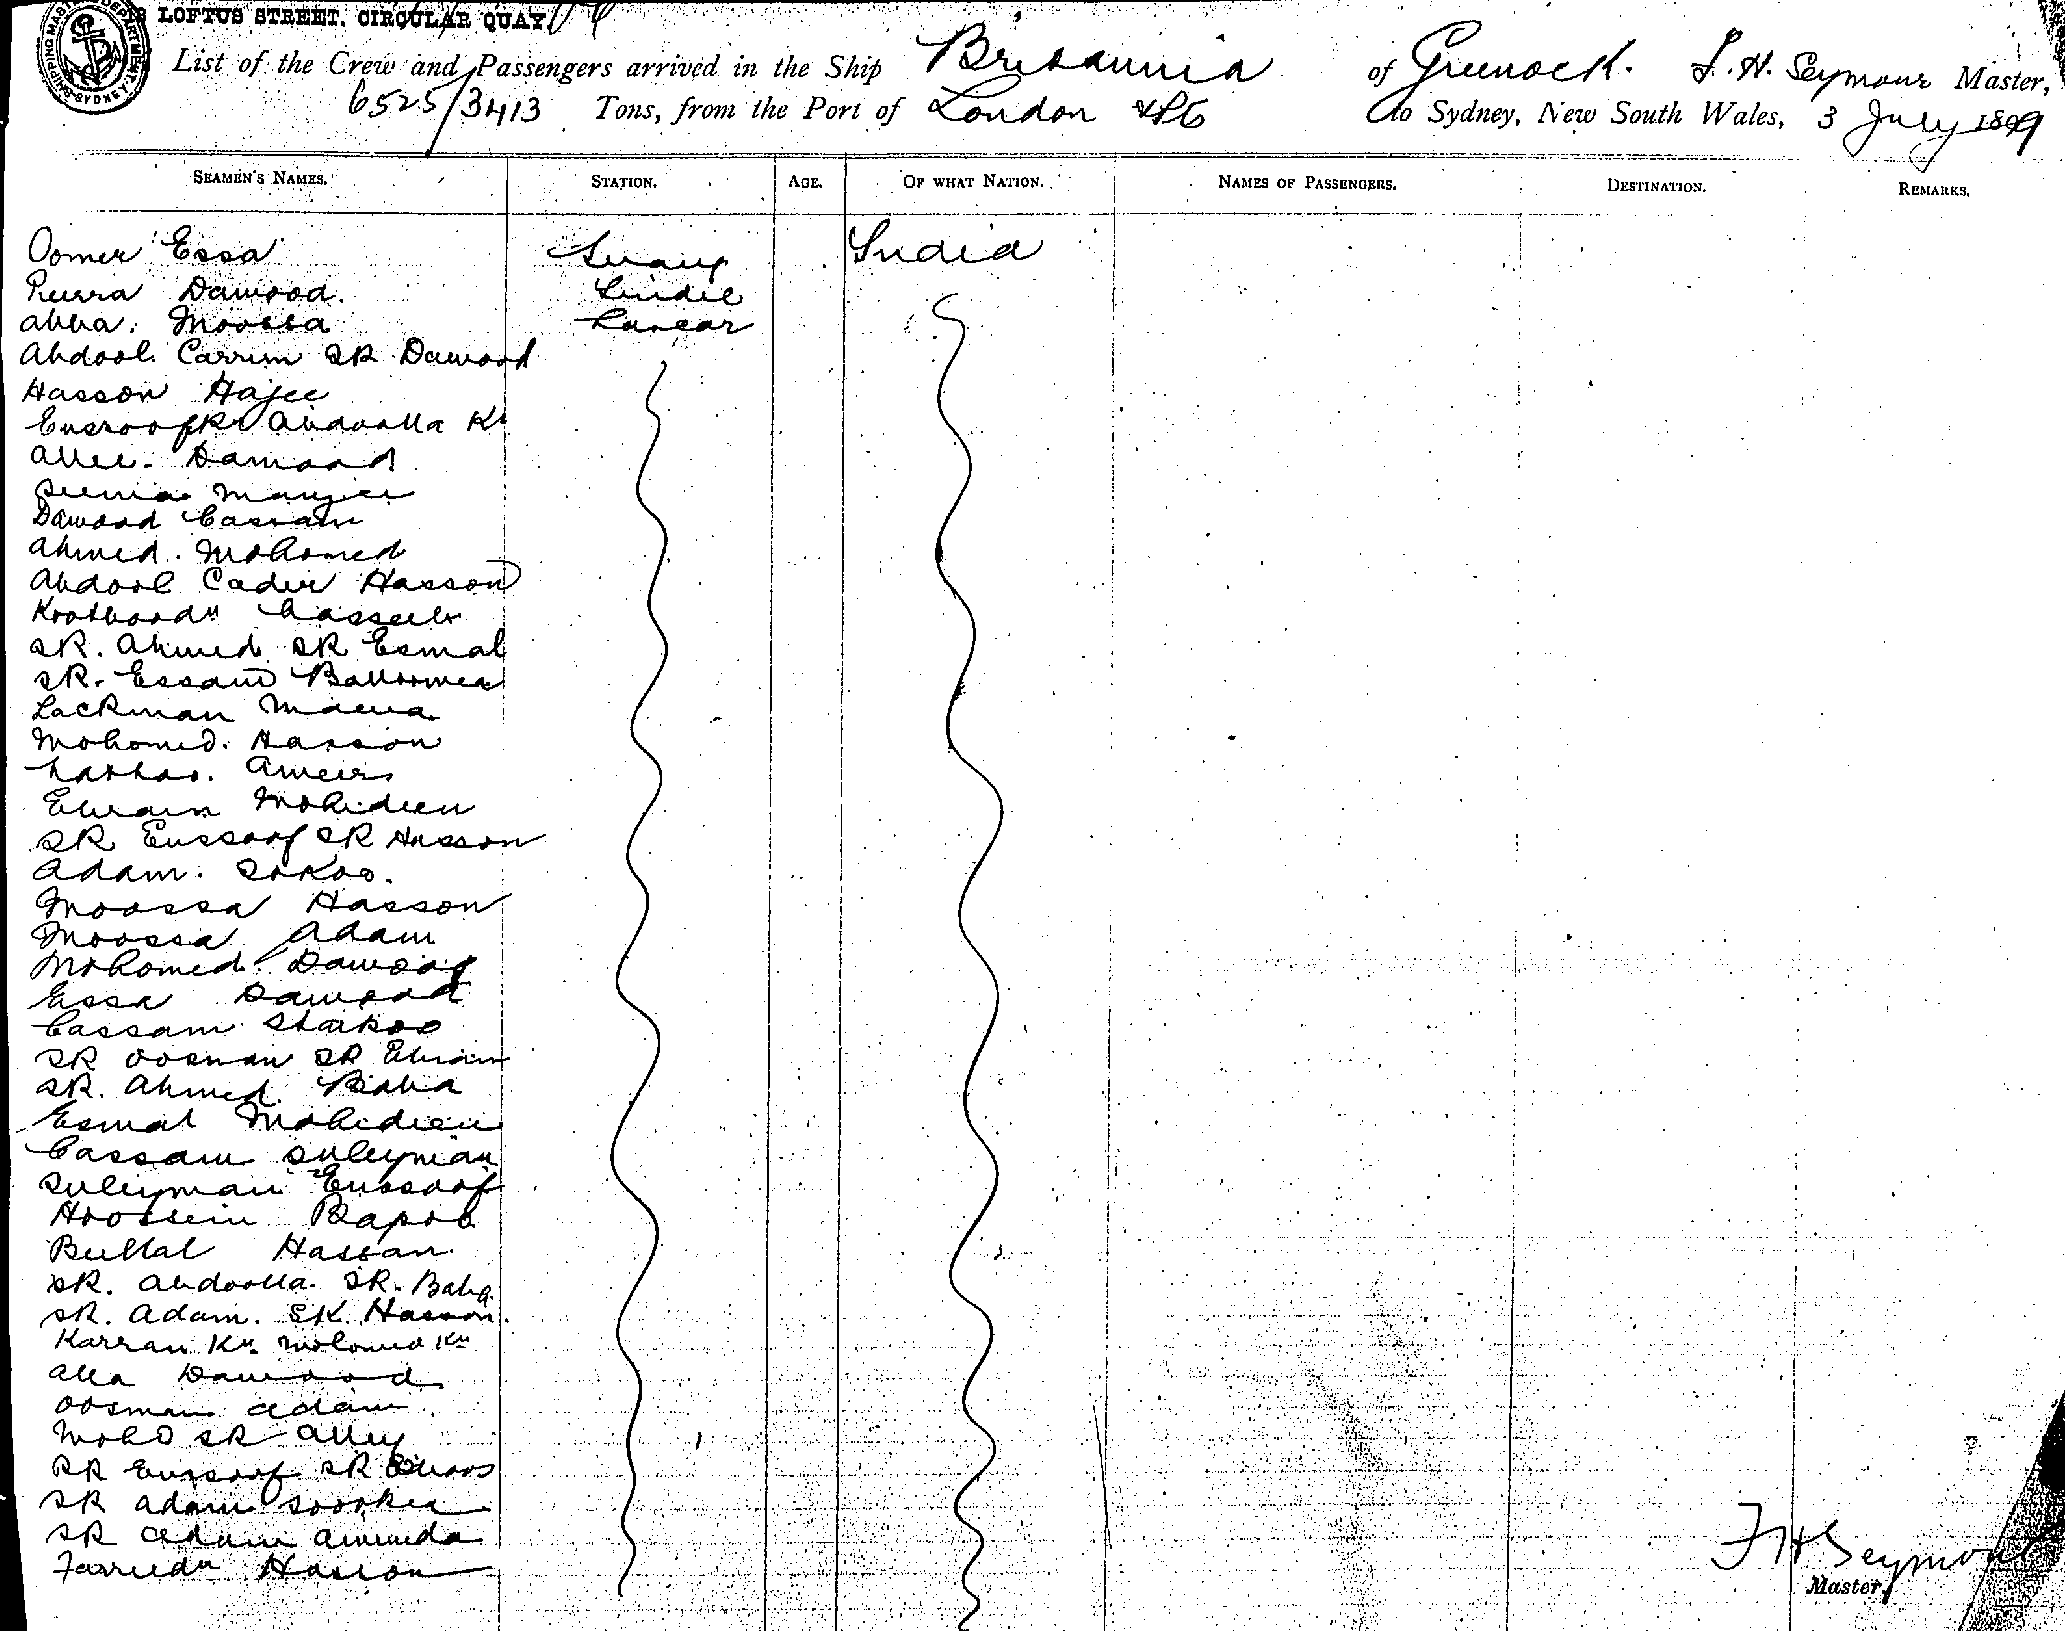 LOFTUS STREET. CIRCULAR QUAY
SHIPPING MASTER'S DEPARTMENT SYDNEY
List of the Crew and Passengers arrived in the Ship Britannia of Greenock. F. H. Seymour Master,
6525/3413 Tons, from the Port of London to Sydney, New South Wales, 3 July 1899
SEAMEN'S NAMES. STATION. AGE. OF WHAT NATION. NAMES OF PASSENGERS. DESTINATION. REMARKS.
Oomer Essa India
Dawood. Tindil
Abba. Moossa Lascar
Abdool Carrim SK Dawood
Hasson Hajee
Abdoolla Kn
Allee. Dawood
Dawood Cassam
Ahmed. Mohomed
Abdool Cader Hasson
SK. Ahmed SK Esmal
SK. Essam
Lackman
Mohomed. Hasson
Ameer
Ebram Mohideen
SK Eussoof SK Hasson
Adam.
Moossa Hasson
Moossa Adam
Mohomed Dawood
Essa Dawood
Cassam Shakoo
SK Oosman SK Ebram
SK. Ahmed Baba
Esmal Mohideen
Cassam Suleyman
Suleyman Eussoof
Hoossein Bapoo
Bullal Hassan
SK. Abdoolla. SK. Baba
SK. Adam. SK. Hasson.
Karran Kn. Mohomed Kn
Alla Dawood
Oosman Adam
Mohd SK Alley
SK Eussoof SK
SK Adam
SK Adam
Hasson
F H Seymour
Master.